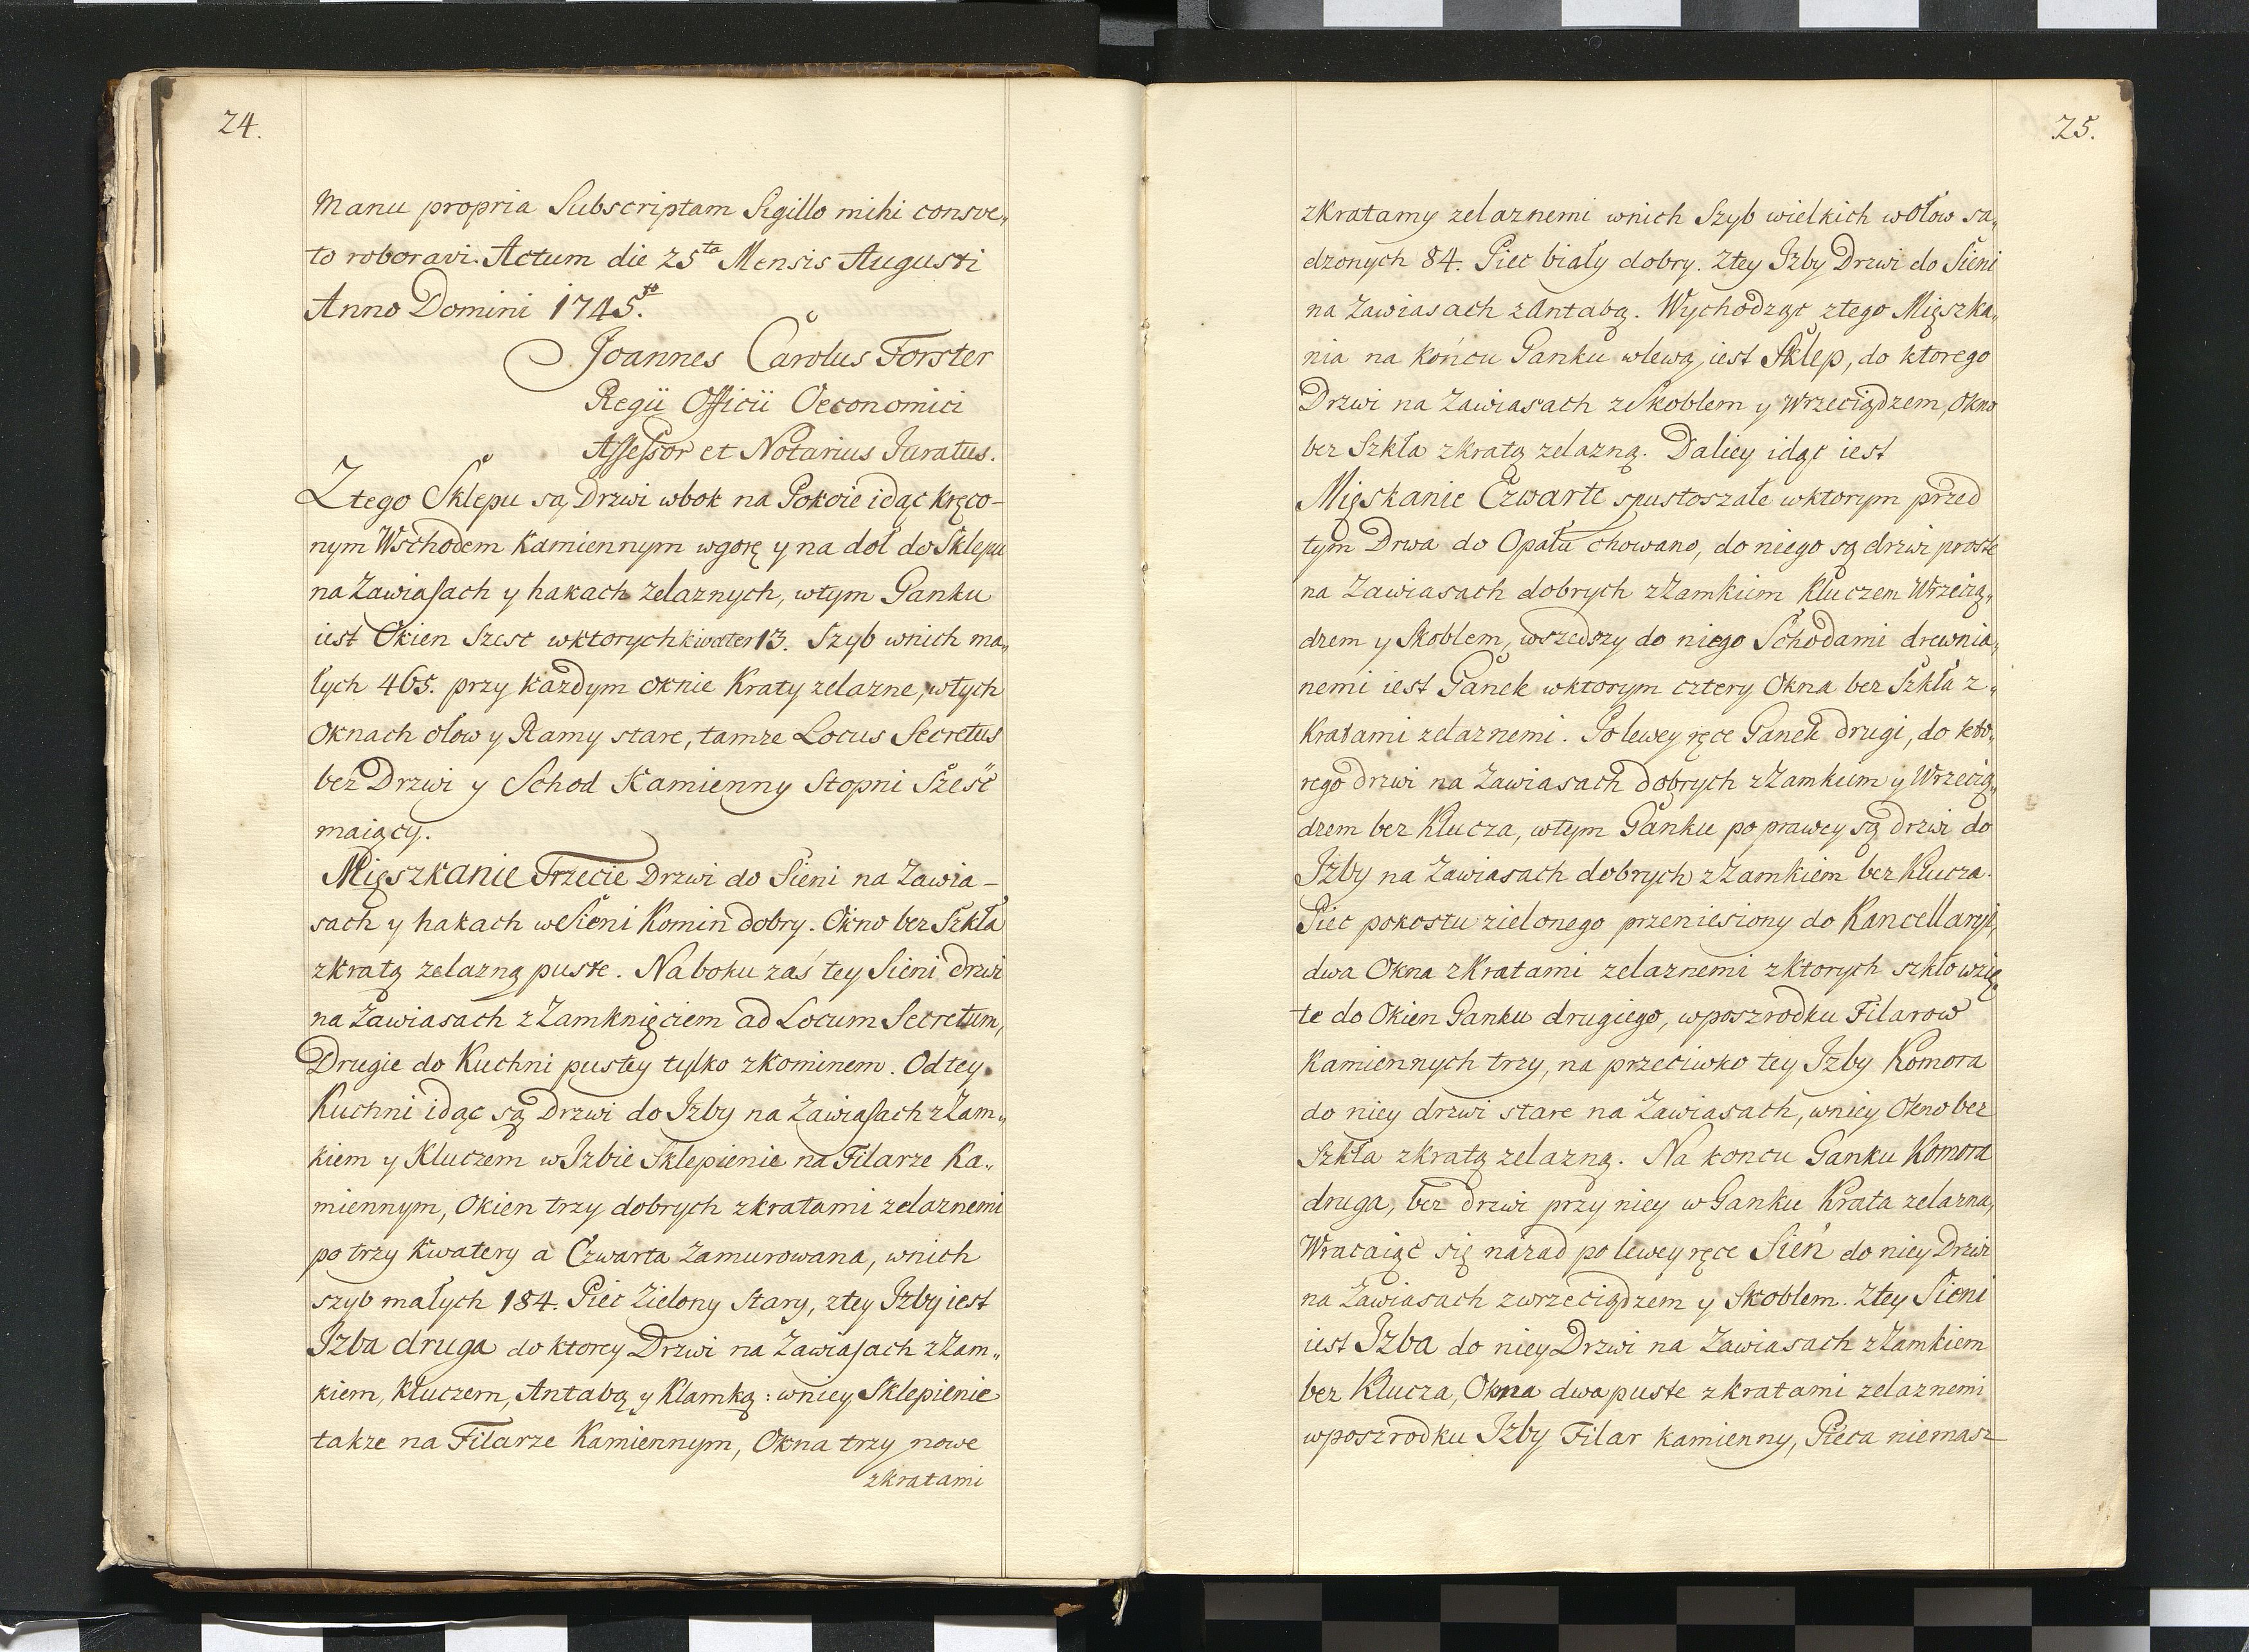 24.
Manu propria Subscriptam Sigillo mihi consve„
to roboravi. Actum die 25ta Mensis Augusti
Anno Domini 1745to.
Joannes Carolus Forster
Regii Officii Oeconomici
Assessor et Notarius Juratus.
Ztego Sklepu są Drzwi wbok na Pokoie idąc kręco-
nym Wschodem Kamiennym wgorę y na doł do Sklepu
na Zawiasach y hakach zelaznych, wtym Ganku
iest Okien Szesc wktorych kwater 13. Szyb wnich ma„
łych 465. przy każdym oknie Kraty zelazne, wtych
Oknach ołow y Ramy stare, tamze Locus Secretus
beż Drzwi y Schod Kamienny Stopni Sześć
maiący.
Mięszkanie Trzecie Drzwi do Sieni na Zawia-
sach y hakach w Sieni Komin dobry. Okno bez Szkła
zkratą zelazną puste. Na boku zaś tey Sieni drzwi
na Zawiasach z Zamknięciem ad Locum Secretum,
Drugie do Kuchni pustey tylko zkominem. Od tey
Kuchni idąc są Drzwi do Izby na Zawiasach z Zam„
kiem y Kluczem w Izbie Sklepienie na Filarze Ka„
miennym, Okien trzy dobrych zkratami zelaznemi
po trzy Kwatery a Czwarta Zamurowana, wnich
szyb małych 184. Piec Zielony Stary, ztey Izby iest
Izba druga do ktorey Drzwi na Zawiasach z Zam„
kiem, Kluczem, Antabą y Klamką: wniey Sklepienie
takze na Filarze Kamiennym, Okna trzy nowe
zkratami
25.
zkratamy zelaznemi wnich Szyb wielkich wołow sa„
dzonych 84. Piec biały dobry. Ztey Izby Drzwi do Sieni
na Zawiasach z Antabą. Wychodząc ztego Mięszka„
nia na końcu Ganku wlewą, iest Sklep, do ktorego
Drzwi na Zawiasach z Skoblem y Wrzeciądzem, Okno
bez Szkła zkratą zelazną. Daliey idąc iest
Mięskanie Czwarte spustoszałe wktorym przed
tym Drwa do Opału chowano, do niego są drzwi proste
na Zawiasach dobrych z Zamkiem Kluczem Wrzecią„
dzem y Skoblem, wszedszy do niego Schodami drewnia„
nemi iest Ganek wktorym cztery Okna bez Szkła z„
Kratami zelaznemi. Po lewey ręce Ganek drugi, do kto„
rego drzwi na Zawiasach dobrych z Zamkiem y Wrzecią„
dzem bez Klucza, wtym Ganku po prawey są drzwi do
Izby na Zawiasach dobrych z Zamkiem bez Klucza.
Piec pokostu zielonego przeniesiony do Kancellaryi,
dwa Okna zkratami zelaznemi zktorych szkło wzię„
te do Okien Ganku drugiego, wposzrodku Filarow
Kamiennych trzy, na przeciwko tey Izby Komora
do niey drzwi stare na Zawiasach, wniey Okno bez
Szkła zkratą zelazną. Na koncu Ganku Komora
druga, bez drzwi przy niey w Ganku Krata zelazna,
Wracaiąć się názad po lewey ręce Sień do niey Drzwi
na Zawiasach zwrzeciądzem y Skoblem. Ztey Sieni
iest Izba do niey Drzwi na Zawiasach z Zamkiem
bez Klucza, Okna dwa puste zkratami zelaznemi
wposzrodku Izby Filar kamienny, Pieca niemasz